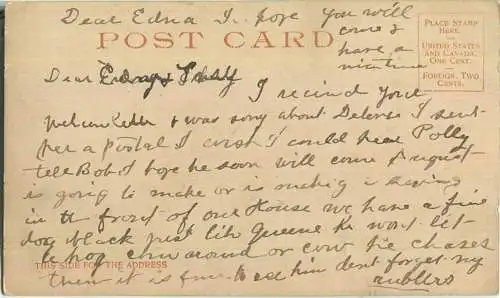 Dear Edna I hope you will
come &
have a
nice time
POST CARD
PLACE STAMP
HERE.
UNITED STATES
AND CANADA,
ONE CENT.
FOREIGN, TWO
CENTS.
Dear
I recived your
welcom letter & was sorry about Delores I sent
her a postal I wish I could hear Polly
tell Bob I hope he soon will come August
is going to make or is making a
in the front of our House we have a fine
dog black just like Queene he wont let
a hog come around or cow he chases
THIS SIDE FOR THE ADDRESS
them it is fun to see him dont forget my
rubbers